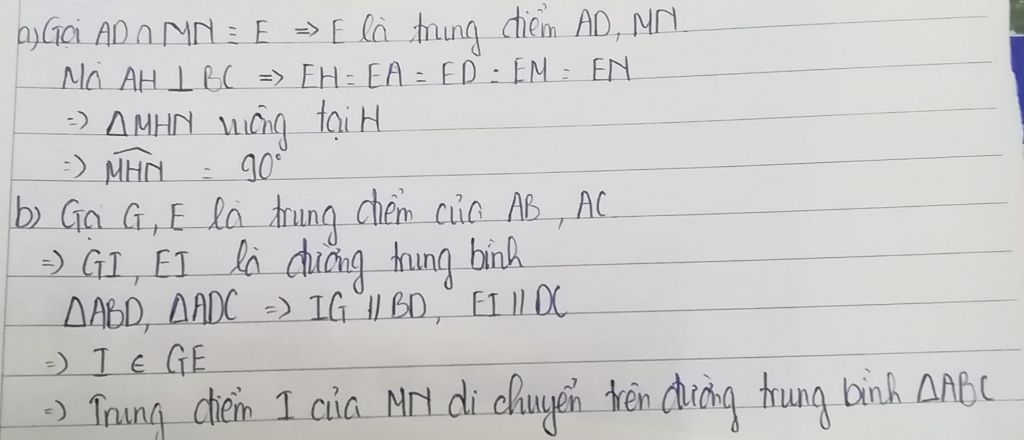 a) Gọi AD ∩ MN ≡ E => E là trung điểm AD, MN
Mà AH ⊥ BC => EH = EA = ED = EM = EN
=> ΔMHN vuông tại H
=> \widehat{MHN} = 90°
b) Gọi G, E là trung điểm của AB, AC
=> GI, EI là đường trung bình
ΔABD, ΔADC => IG // BD, EI // DC
=> I ∈ GE
=> Trung điểm I của MN di chuyển trên đường trung bình ΔABC